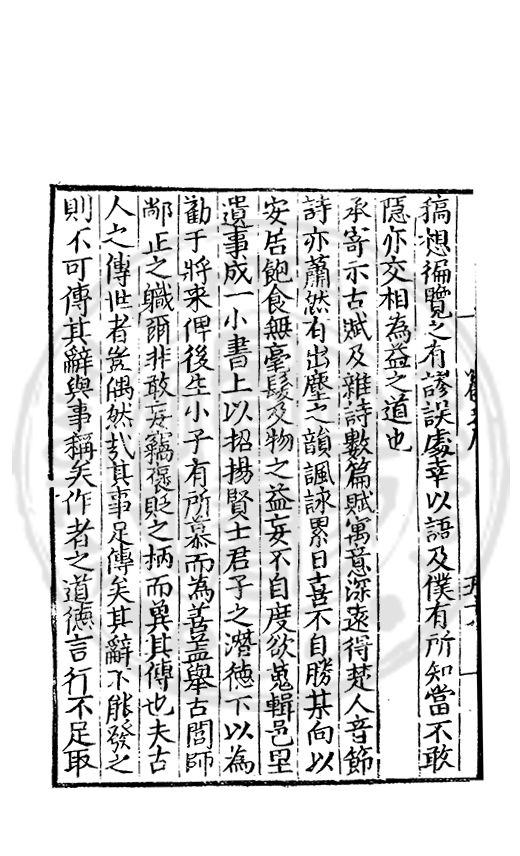 稿想徧覽之有謬誤處幸以語及僕有所知當不敢
隱亦交相為益之道也
承寄示古賦及雜詩數篇賦寓意深遠得楚人音節
詩亦蕭然有出塵之韻諷詠累日喜不自勝某向以
安居飽食無毫髮及物之益妄不自度欲蒐輯邑里
遺事成一小書上以招揚賢士君子之潛德下以為
勸于將來俾後生小子有所慕而為善盖舉古閭師
鄰正之職爾非敢妄竊褒貶之柄而異其傳也夫古
人之傳世者豈偶然㢤其事足傳矣其辭不能發之
則不可傳其辭與事稱矣作者之道德言行不足取